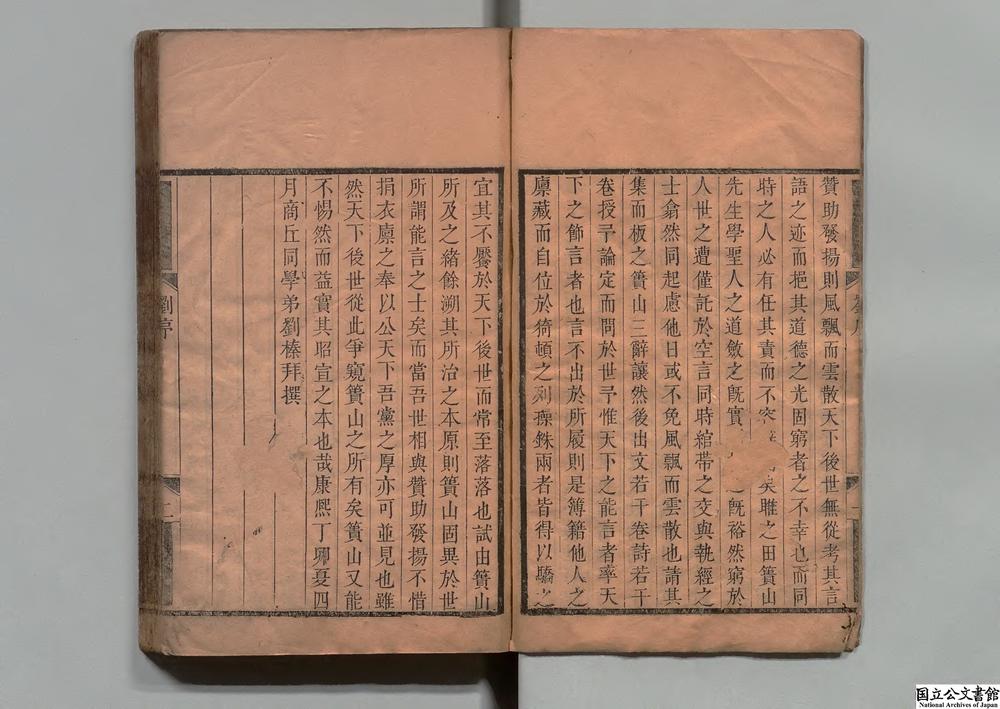 贊助發揚則風飄而雲散天下後世無從考其言
語之迹而挹其道德之光固窮者之不幸也而同
時之人必有任其責而不矣雎之田簣山
先生學聖人之道斂之旣實之旣裕然窮於
人世之遭僅託於空言同時綰帶之交與執經之
士翕然同起慮他日或不免風飄而雲散也請其
集而板之簣山三辭讓然後出文若干卷詩若干
卷授予論定而問於世予惟天下之能言者率天
下之飾言者也言不出於所履則是簿籍他人之
廩藏而自位於猗頓之列操銖兩者皆得以驕之
宜其不饜於天下後世而常至落落也試由簣山
所及之緒餘溯其所治之本原則簣山固異於世
所謂能言之士矣而當吾世相與贊助發揚不惜
捐衣廩之奉以公天下吾黨之厚亦可並見也雖
然天下後世從此爭窺簣山之所有矣簣山又能
不惕然而益實其昭宣之本也哉康熙丁卯夏四
月商丘同學弟劉榛拜撰
劉序
二
国立公文書館
National Archives of Japan